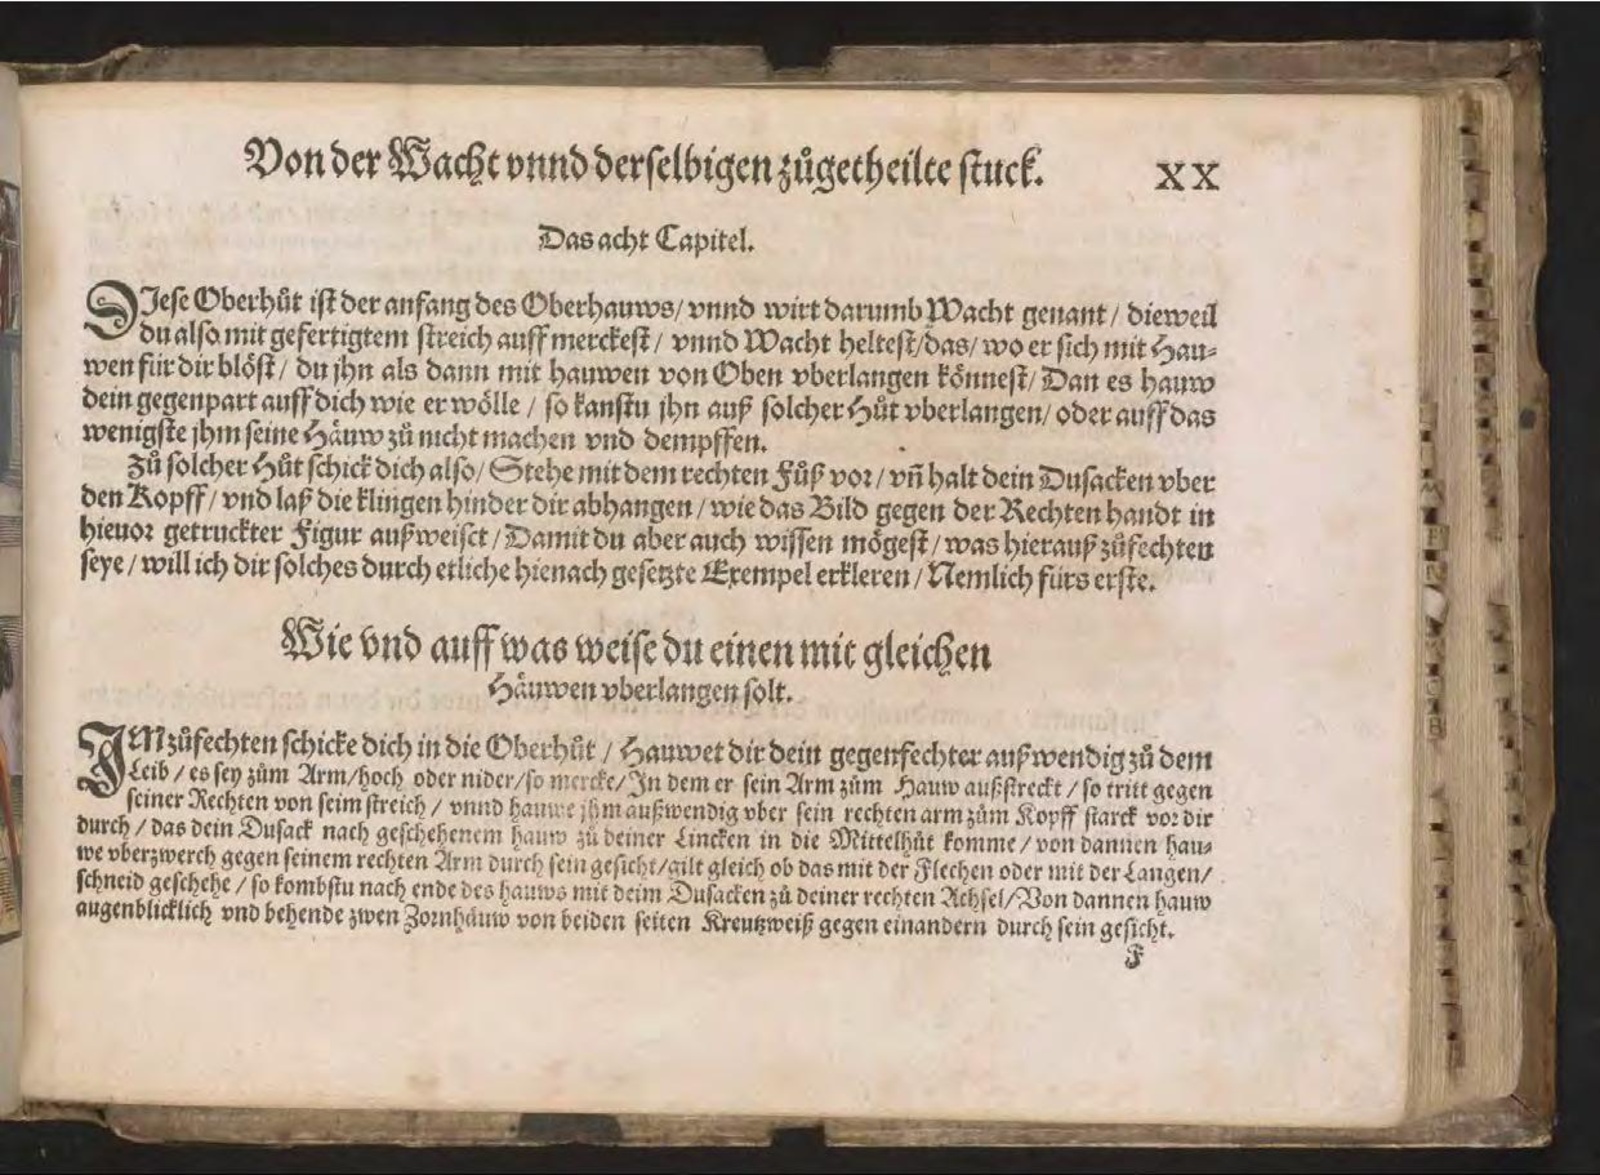 Von der Wacht vnnd derselbigen zůgetheilte stuck. XX
Das acht Capitel.
DIese Oberhůt ist der anfang des Oberhauws/ vnnd wirt darumb Wacht genant/ dieweil
du also mit gefertigtem streich auff merckest/ vnnd Wacht heltest/das/ wo er sich mit Hau-
wen für dir blöst/ du jhn als dann mit hauwen von Oben vberlangen könnest/ Dan es hauw
dein gegenpart auff dich wie er wölle / so kanstu jhn auß solcher Hůt vberlangen/ oder auff das
wenigste jhm seine Häuw zů nicht machen vnd dempffen.
Zů solcher Hůt schick dich also/ Stehe mit dem rechten Fůß vor/ vñ halt dein Dusacken vber
den Kopff/ vnd laß die klingen hinder dir abhangen/ wie das Bild gegen der Rechten handt in
hieuor getruckter Figur außweiset/ Damit du aber auch wissen mögest/ was hierauß zůfechten
seye/ will ich dir solches durch etliche hienach gesetzte Exempel erkleren/ Nemlich fürs erste.
Wie vnd auff was weise du einen mit gleichen
Häuwen vberlangen solt.
IM zůfechten schicke dich in die Oberhůt / Hauwet dir dein gegenfechter außwendig zů dem
Leib/ es sey zům Arm/hoch oder nider/so mercke/In dem er sein Arm zům Hauw außstreckt/ so tritt gegen
seiner Rechten von seim streich/ vnnd hauwe jhm außwendig vber sein rechten arm zům Kopff starck vor dir
durch/ das dein Dusack nach geschehenem hauw zů deiner Lincken in die Mittelhůt komme/ von dannen hau-
we vberzwerch gegen seinem rechten Arm durch sein gesicht/gilt gleich ob das mit der Flechen oder mit der Langen/
schneid geschehe/ so kombstu nach ende des hauws mit deim Dusacken zů deiner rechten Achsel/Von dannen hauw
augenblicklich vnd behende zwen Zornhäuw von beiden seiten Kreutzweiß gegen einandern durch sein gesicht.
F